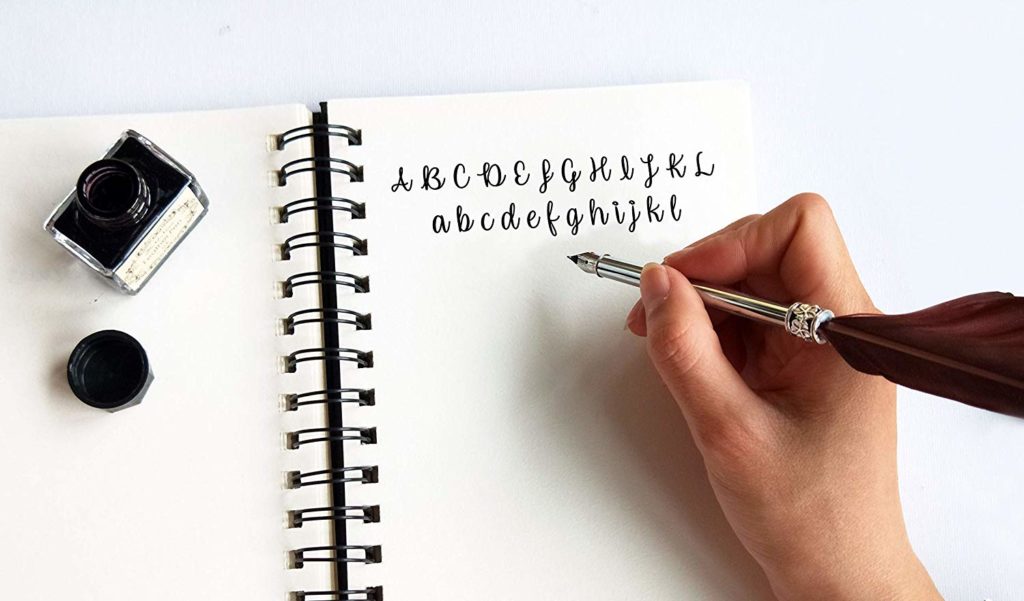 A B C D E F G H I J K L
a b c d e f g h i j k l